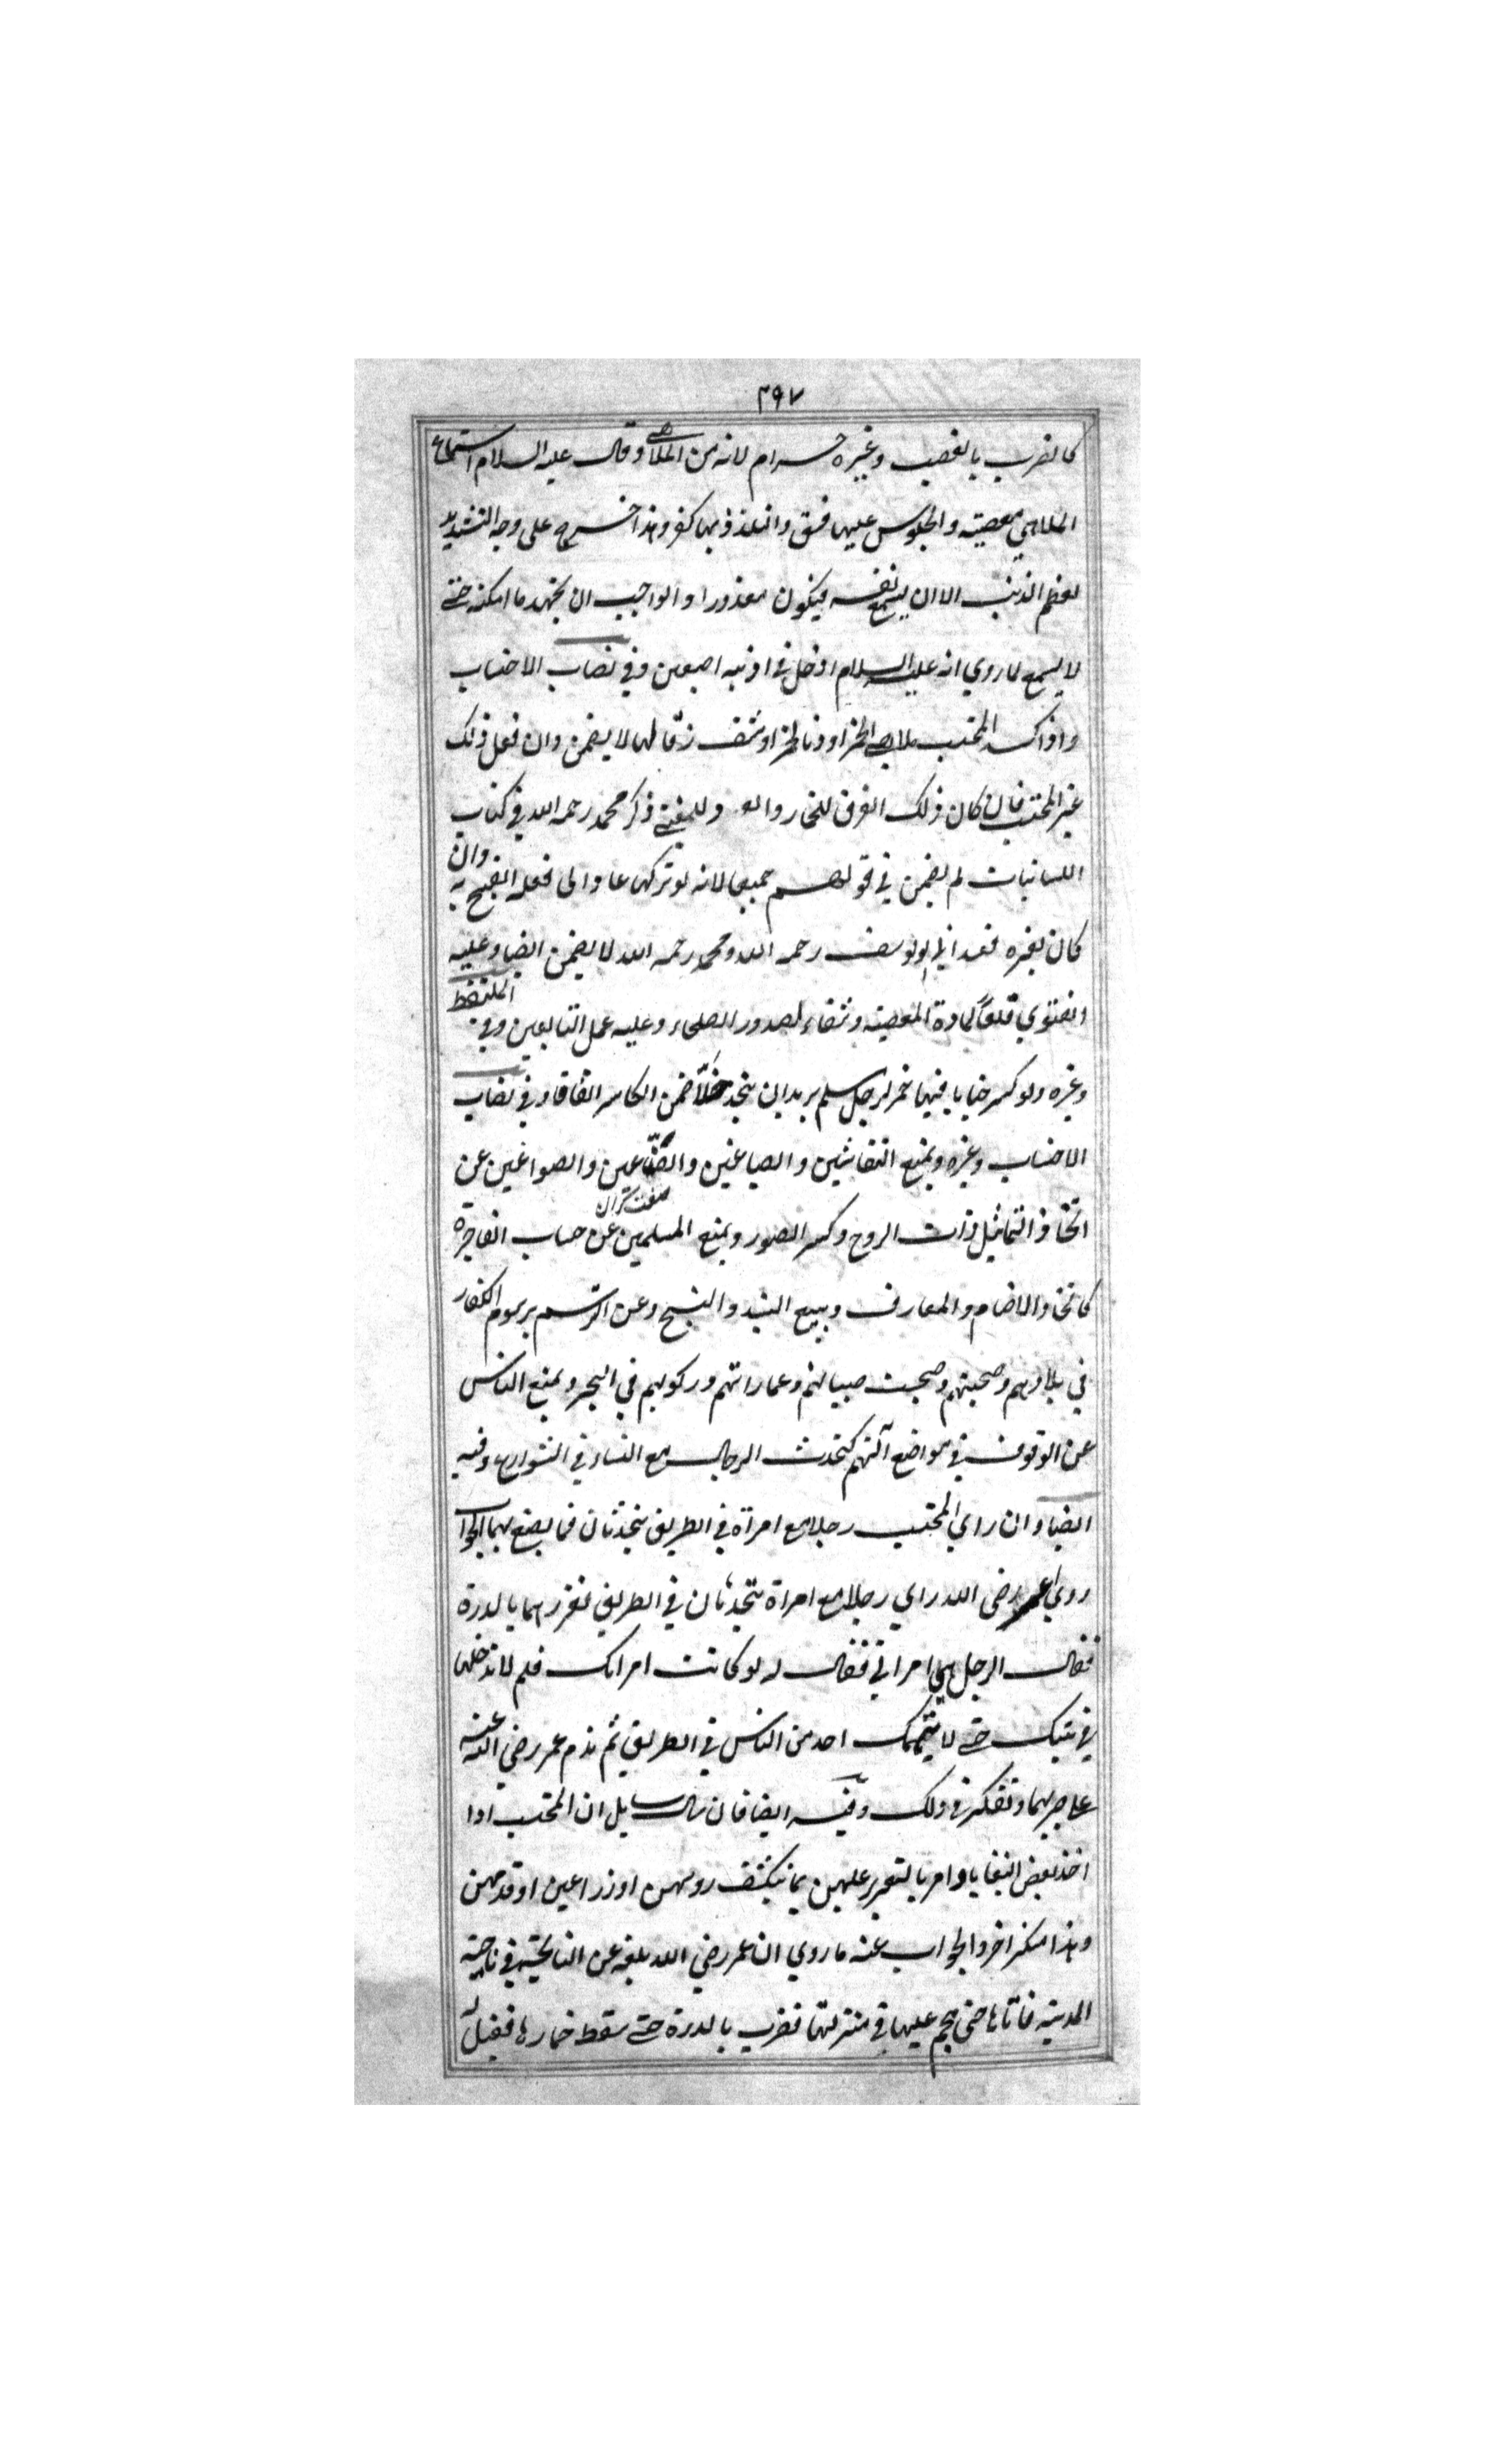 ٢٩٧
كالضرب بالقضيب وغيره حرام لانه من الملاهي وقال عليه السلام استماع
الملاهي معصية والجلوس عليها فسق والتلذذ بها كفر وهذا خرج على وجه التشديد
لعظم الذنب الا ان يسمع نفسه فيكون معذورا والواجب ان يجتهد ما امكنه حتى
لا يسمع لما روي انه عليه السلام ادخل في اذنيه اصبعين وفي نصاب الاحتساب
واذا كسر المحتسب ملاهي الخمر او دنا لخمر او شق زقا لها لا يضمن وان فعل ذلك
غير المحتسب فان كان ذلك الفرق للخمار وللمغني ذكر محمد رحمه الله في كتاب
لم يضمن في قولهم جميعا لانه لو تركها عاد الى فعله القبيح به وان
كان لغيره فعند ابي يوسف رحمه الله ومحمد رحمه الله لا يضمن ايضا وعليه
الفتوي قلعا لمادة المعصية وشفاء لصدور الصلحاء وعليه عمل التابعين وفي الملتقط
وغيره ولو كسر خنابا فيها خمر لرجل مسلم يريد ان يتخذ خلا ضمن الكاسر اتفاقا وفي نصاب
الاحتساب وغيره ويمنع النقاشين والصباغين والصناعين والصواغين عن
اتخاذ التماثيل ذات الروح وكسر الصور ويمنع المسلمين عن الفاجرة
كاتخاذ الاصنام والمعازف وبيع النبيذ والبنج وعن الترسم برسوم الكفار
في بلادهم وصحبتهم وصحبت صبيانهم وعماراتهم وركوبهم في البحر ويمنع الناس
عن الوقوف في مواضع كتحدث الرجال مع النساء في الشوارع وفيه
ايضا وان راي المحتسب رجلا مع امراة في الطريق يتحدثان فما يصنع بهما الجواب
روي عمر رضى الله راي رجلا مع امراة يتحدثان في الطريق فعزرهما بالدرة
فقال الرجل هي امراتي فقال له لو كانت امراتك فلم لا تدخلها
في بيتك حتى لا يتهمك احد من الناس في الطريق ثم ندم عمر رضي الله عنه
على ضربهما وتفكر في ذلك وفيه ايضا فان سال سايل ان المحتسب اذا
اخذ بعض البغايا وامر بالتعزير عليهن بما ينكشف روسهن او ذراعين او قدمهن
وهذا منكر اخر والجواب عنه ما روي ان عمر رضي الله بلغه عن النايحة في ناحية
المدينة فاتاها حتى هجم عليها في منزلتها فضرب بالدرة حتى سقط خمارها فقيل له